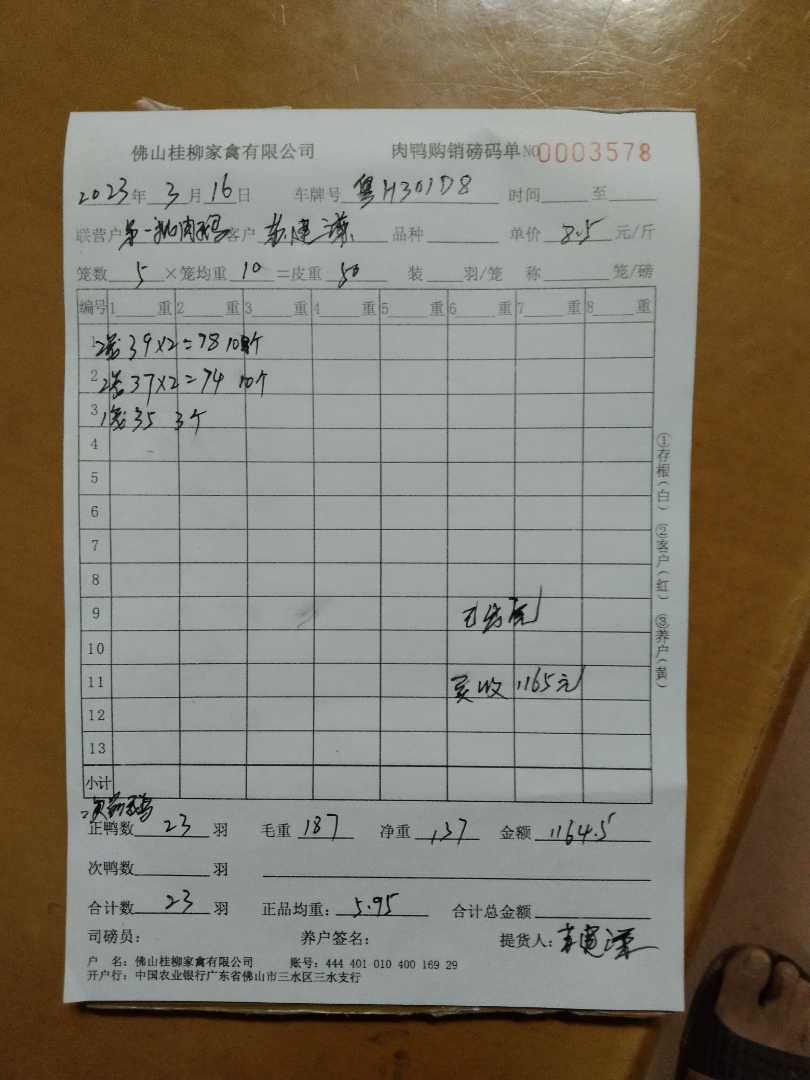 佛山桂柳家禽有限公司 肉鸭购销磅码单 NO 0003578
2023年 3月 16日 车牌号 粤H301D8 时间 至
联营户 客户 品种 单价 8.5 元/斤
笼数 5 ×笼均重 10 =皮重 50 装 羽/笼 称 笼/磅
编号 1 重 2 重 3 重 4 重 5 重 6 重 7 重 8 重
1 2笼 39×2=78 10个
2 2笼 37×2=74 10个
3 1笼 35 3个
4
5
6
7
8
9
10
11 实收 1165元
12
13
小计
正鸭数 23 羽 毛重 187 净重 137 金额 1164.5
次鸭数 羽
合计数 23 羽 正品均重: 5.95 合计总金额
司磅员: 养户签名: 提货人:
户 名: 佛山桂柳家禽有限公司 账号: 444 401 010 400 169 29
开户行: 中国农业银行广东省佛山市三水区三水支行
①存根(白) ②客户(红) ③养户(黄)